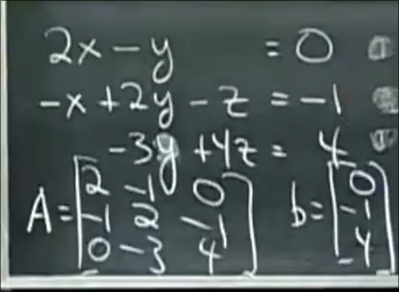 2x - y = 0 ①
-x + 2y - z = -1
-3y + 4z = 4
A = [2 -1 0
-1 2 -1
0 -3 4]
b = [0
-1
4]